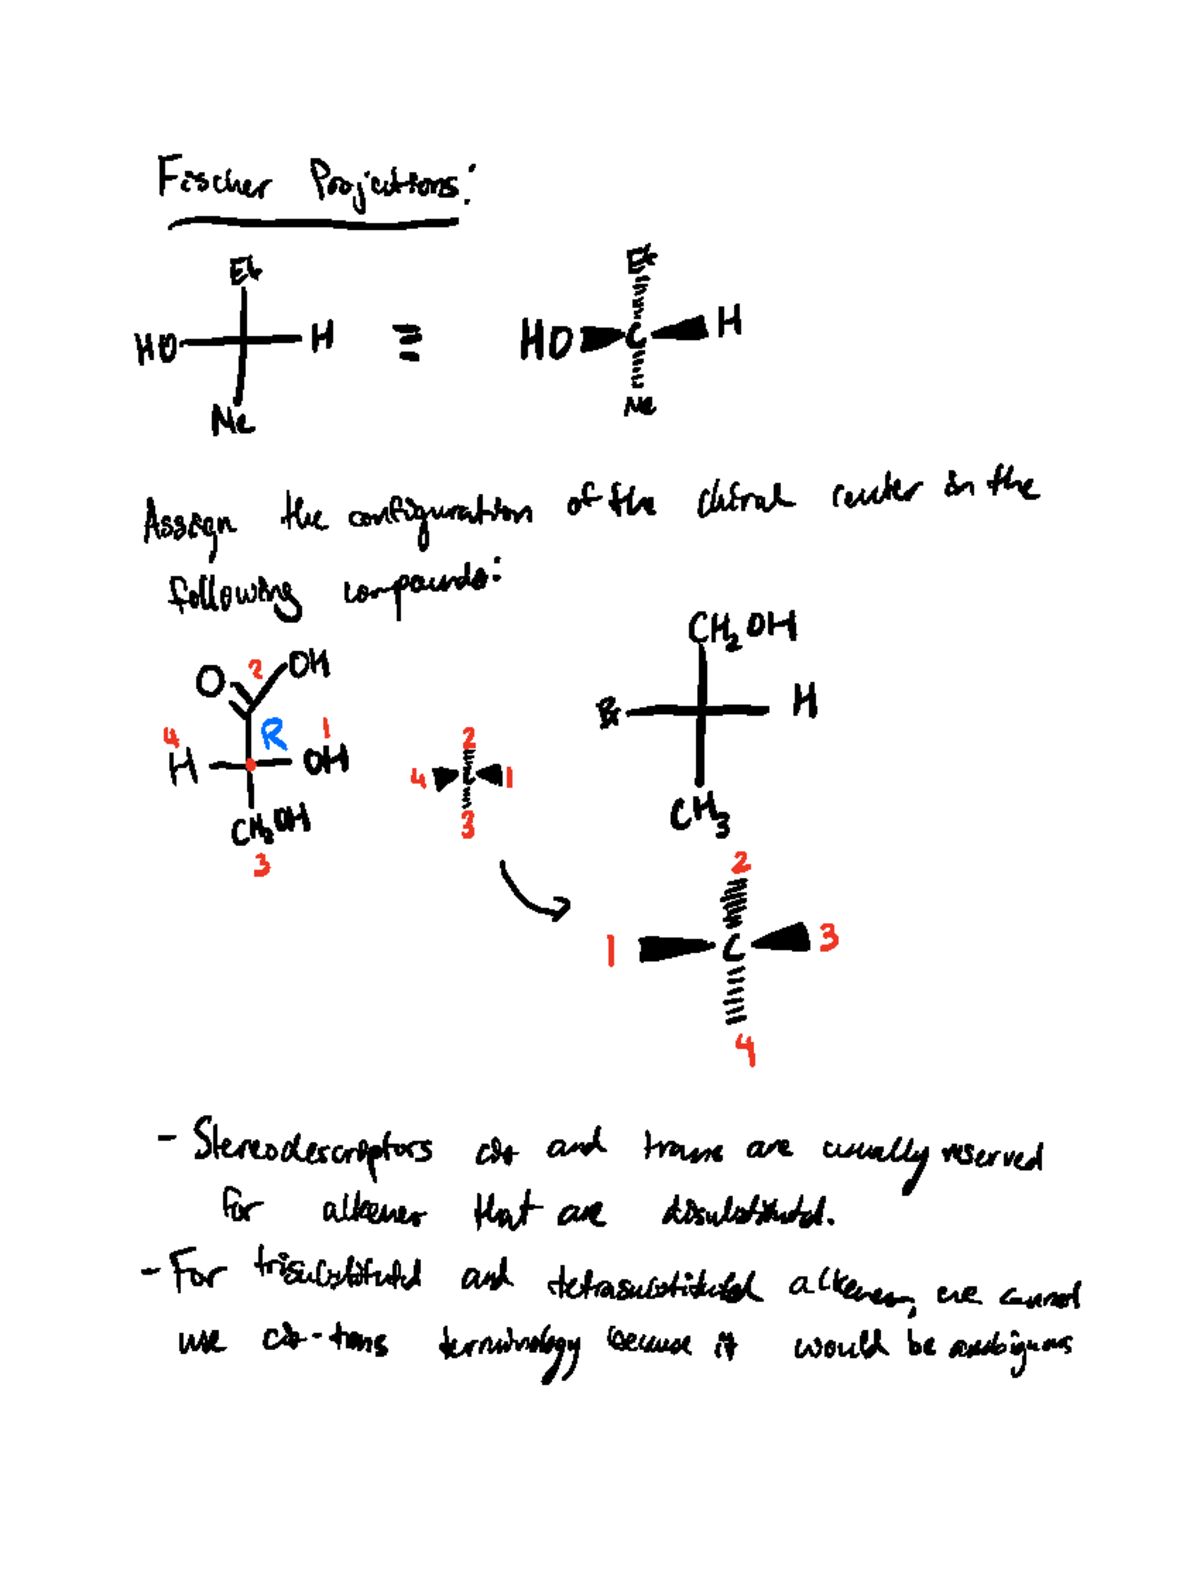 Fischer Projections:
Et
HO H
Me
≡
Et
HO C H
Me
Assign the configuration of the chiral center in the
following compounds:
O 2 OH
4 R 1
H OH
CH2OH
3
2
4 C 1
3
CH2OH
Br H
CH3
2
1 C 3
4
- Stereodescriptors cis and trans are usually reserved
for alkenes that are disubstituted.
- For trisubstituted and tetrasubstituted alkenes, we cannot
use cis-trans terminology because it would be ambiguous